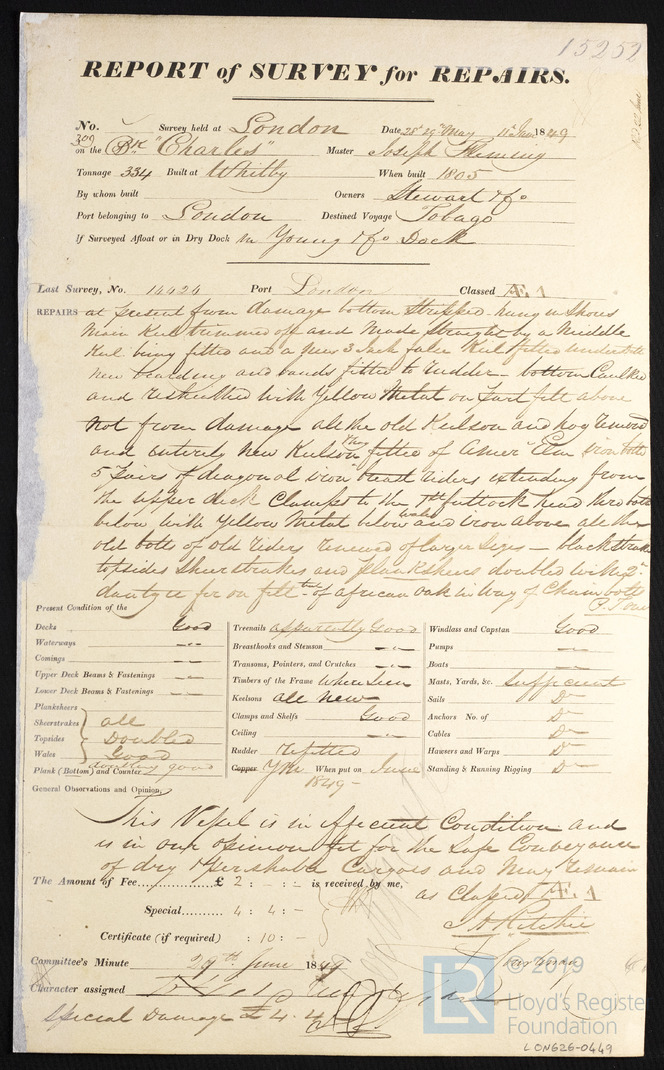 15252
REPORT of SURVEY for REPAIRS.
No. 309 Survey held at London Date 28th 29th May 11th June 1849
on the Bk "Charles" Master Joseph Fleming
Tonnage 334 Built at Whitby When built 1805
By whom built Owners Stewart & Co
Port belonging to London Destined Voyage Tobago
If Surveyed Afloat or in Dry Dock in Young & Co Dock
Last Survey, No. 14424 Port London Classed Æ 1
REPAIRS at present from damage bottom stripped hung in Shores
Main Keel trimmed off and made straight by a middle
Keel being fitted and a new 3 Inch false Keel fitted under
new bearding and bands fitted to rudder - bottom Caulked
and resheathed with Yellow Metal on felt above
Not from damage all the old Keelson and removed
and entirely new Keelson fitted of Amer Elm iron bolts
5 pairs of diagonal iron riders extending from
the upper deck Clamps to the 1st futtock head thro bolts
below with Yellow Metal below wales and iron above all the
old bolts of old riders renewed of larger sizes - blackstrake
topsides Sheerstrakes and plankshears doubled with 2 in
of african oak in way of Chain bolts
P.T. over
Present Condition of the
Decks Good
Waterways --
Comings --
Upper Deck Beams & Fastenings --
Lower Deck Beams & Fastenings --
Planksheers
Sheerstrakes all
Topsides Doubled
Wales Good
Plank (Bottom) and Counter doubling good
Treenails apparently Good
Breasthooks and Stemson --
Transoms, Pointers, and Crutches --
Timbers of the Frame Where seen
Keelsons all new
Clamps and Shelfs Good
Ceiling --
Rudder refitted
Copper YM When put on June
1849 -
Windlass and Capstan Good
Pumps --
Boats --
Masts, Yards, &c. Sufficient
Sails Do
Anchors No. of Do
Cables Do
Hawsers and Warps Do
Standing & Running Rigging Do
General Observations and Opinion,
This Vessel is in efficient Condition and
is in our opinion fit for the Safe Conveyance
of dry & perishable Cargoes and may remain
as Classed Æ 1
The Amount of Fee £ 2 : - : - is received by me,
Special 4 : 4 : -
Certificate (if required) : 10 : -
J A Ritchie
Committee's Minute 29th June 1849
Character assigned
Special Damage £4. 4
© 2019
LR
Lloyd's Register
Foundation
LON626-0449